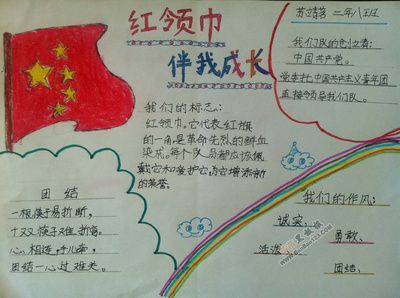 红领巾
伴我成长
苏靖茗 二年八班
我们队的创立者:
中国共产党。
党委托中国共产主义青年团
直接领导我们队。
我们的标志:
红领巾。它代表红旗
的一角,是革命先烈的鲜血
染成。每个队员都应该佩
戴它和爱护它,为它增添新
的荣誉。
团结
一根筷子易折断,
十双筷子难折弯。
心相连,手儿牵,
团结一心过难关。
我们的作风:
诚实、
勇敢、
活泼、
团结。